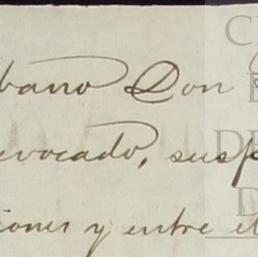 bano Don
evocado, susp
iones y entre el